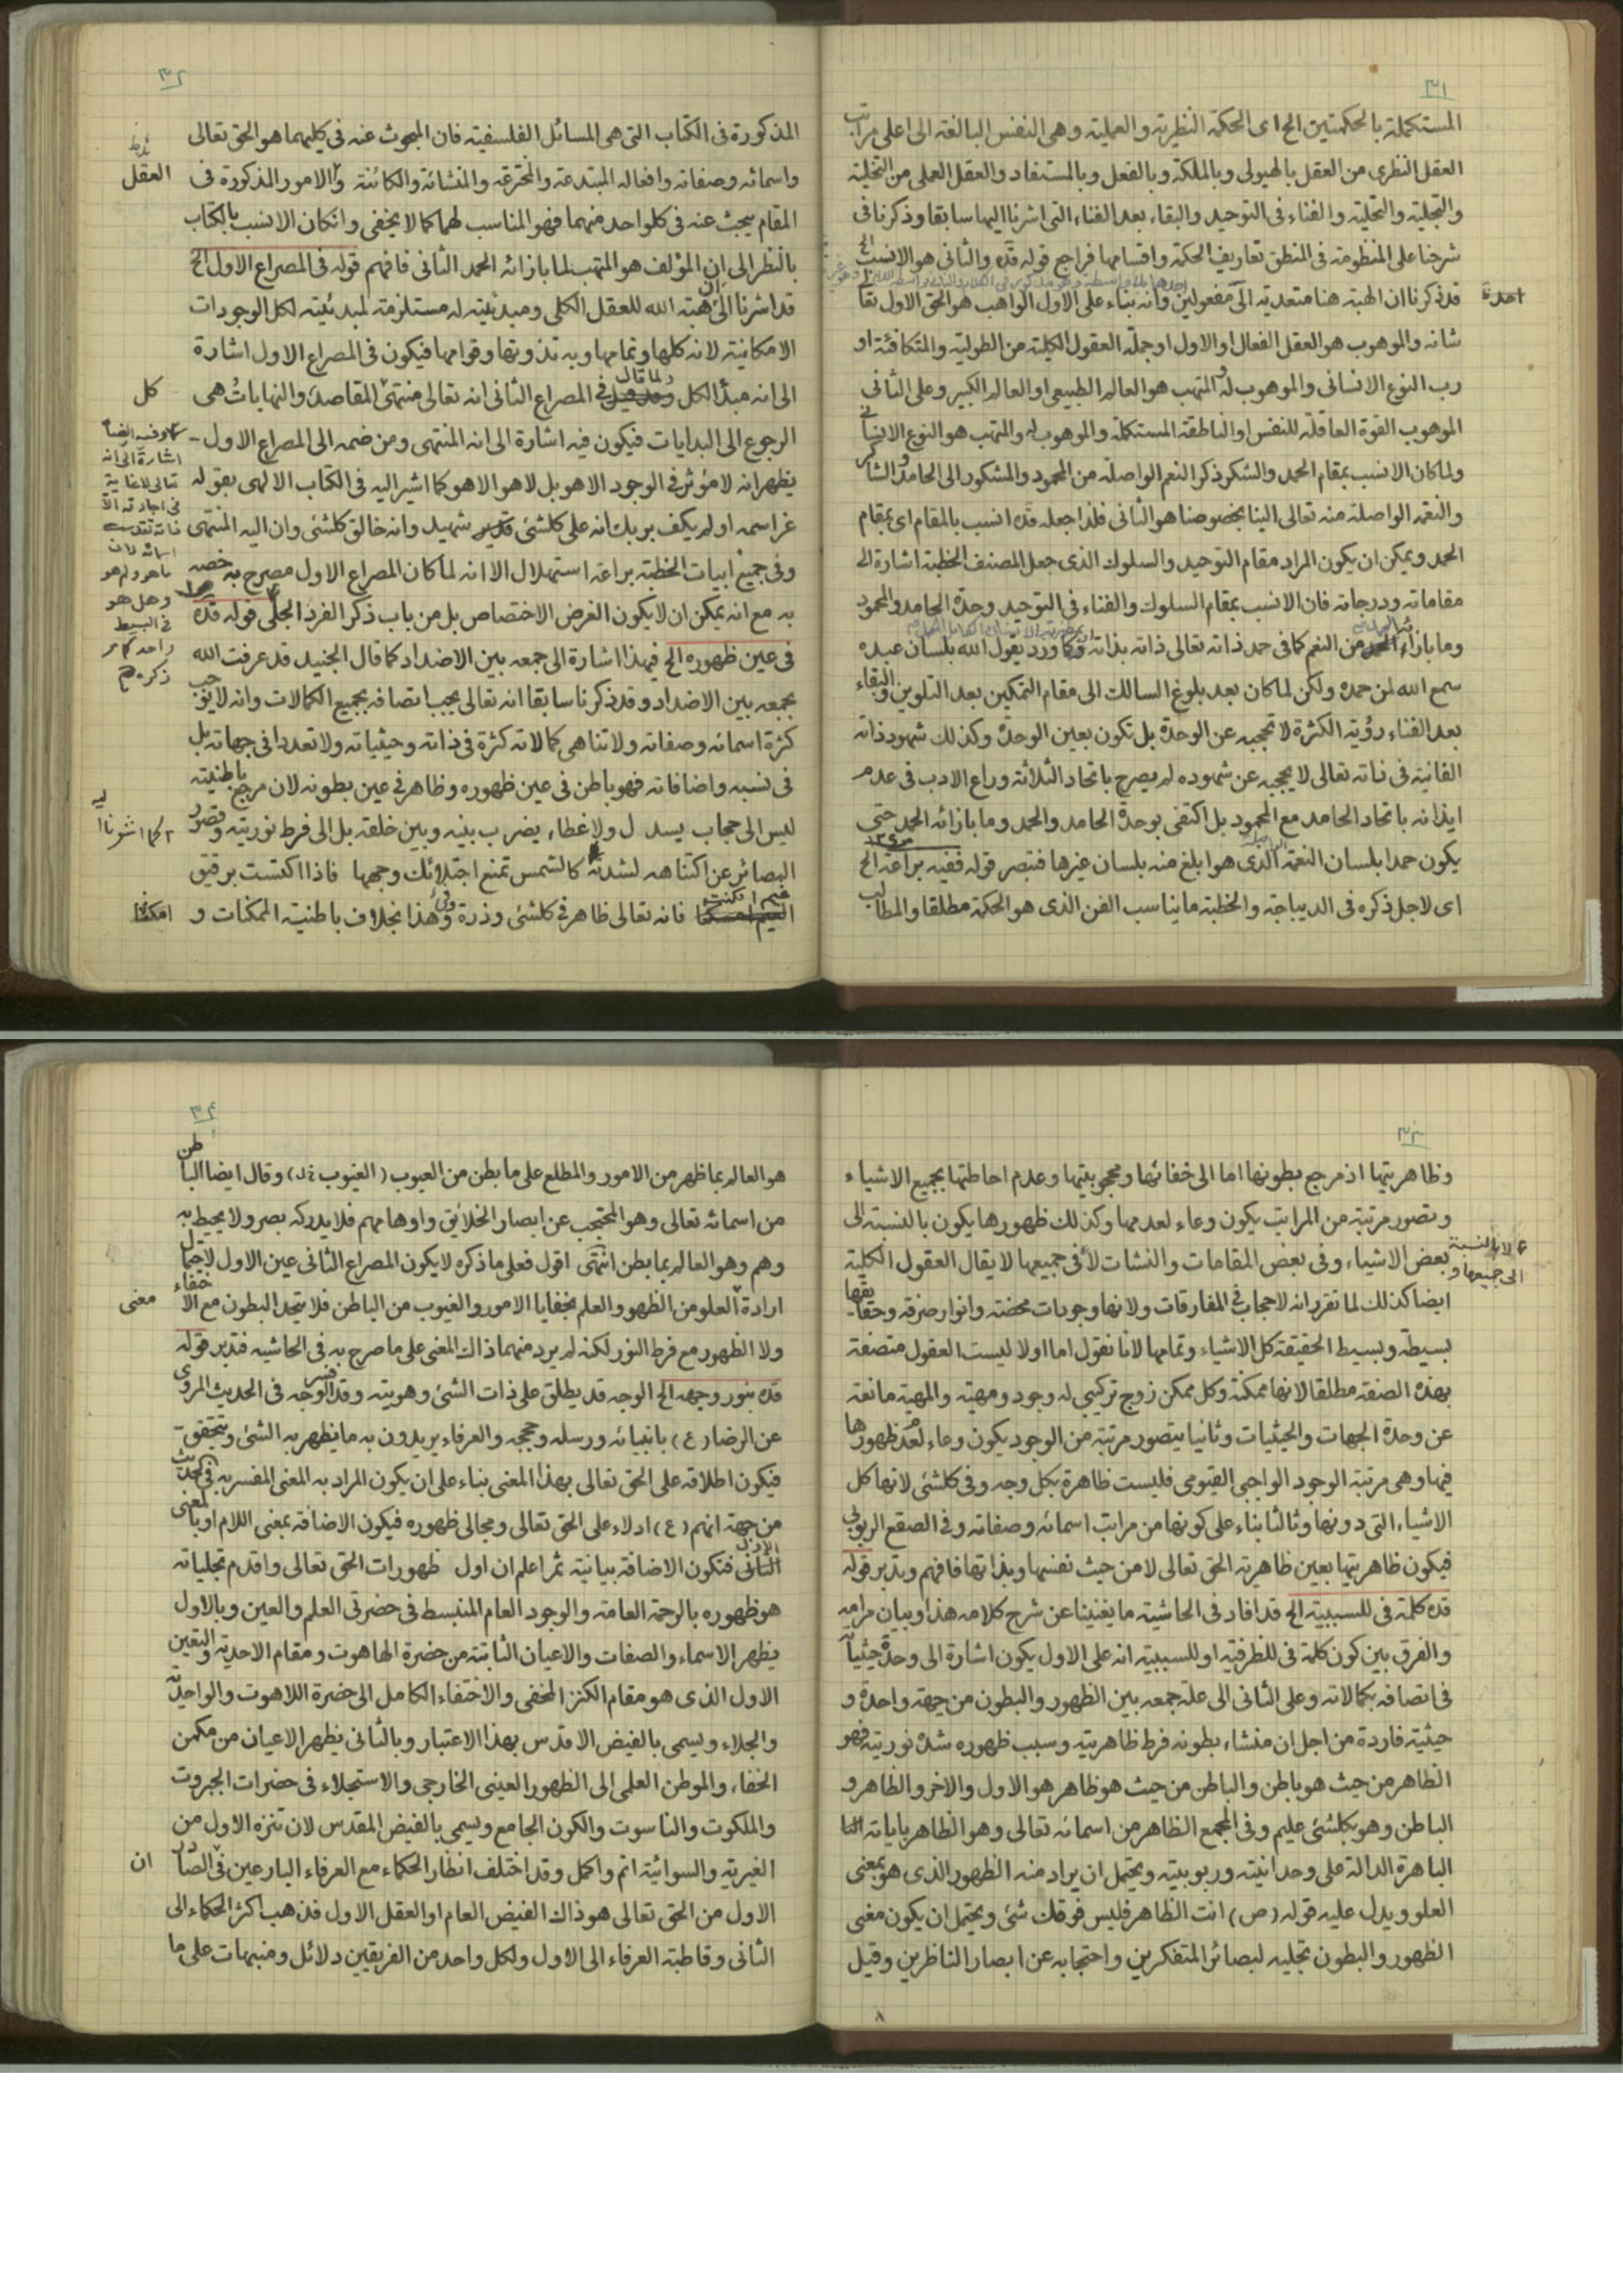 ٣١
المستكملة بالحكمتين الخ اى الحكمة النظرية والعملية وهى النفس البالغة الى اعلى مراتب
العقل النظرى من العقل بالهيولى وبالملكة وبالفعل وبالمستفاد والعقل العملى من التخلية
والتجلية والتحلية والفناء فى التوحيد والبقاء بعد الفناء التى اشرنا اليها سابقا وذكرنا فى
شرحنا على المنظومة فى المنطق تعاريف الحكمة واقسامها فراجع قوله قده والثانى هو الانسب الخ
قد ذكرنا ان الهبة هنا متعدية الى مفعولين وانه بناء على الاول الواهب هو الحق الاول تعالى
شانه والموهوب هو العقل الفعال او الاول او جملة العقول الكلية من الطولية والمتكافئة او
رب النوع الانسانى والموهوب له والمتهب هو العالم الطبيعى او العالم الكبير وعلى الثانى
الموهوب القوة العاقلة للنفس او الناطقة المستكملة والموهوب له والمتهب هو النوع الانسانى
ولما كان الانسب بمقام الحمد والشكر ذكر النعم الواصلة من المحمود والمشكور الى الحامد والشاكر
والنعمة الواصلة منه تعالى الينا بخصوصنا هو الثانى فلذا جعله قده انسب بالمقام اى بمقام
الحمد ويمكن ان يكون المراد مقام التوحيد والسلوك الذى جعل المصنف الخطبة اشارة الى
مقاماته ودرجاته فان الانسب بمقام السلوك والفناء فى التوحيد وحدة الحامد والمحمود
وما بازاء الحمد من النعم كما فى حمد ذاته تعالى ذاته بذاته وكما ورد يقول الله بلسان عبده
سمع الله لمن حمده ولكن لما كان بعد بلوغ السالك الى مقام التمكين بعد التلوين والبقاء
بعد الفناء رؤية الكثرة لا تحجبه عن الوحدة بل تكون بعين الوحدة وكذلك شهود ذاته
الفانية فى ذاته تعالى لا يحجبه عن شهوده لم يصرح باتحاد الثلاثة وراع الادب فى عدم
ايذانه باتحاد الحامد مع المحمود بل اكتفى بوحدة الحامد والحمد وما بازائه الحمد حتى
يكون حمدا بلسان النعمة الذى هو ابلغ منه بلسان غيرها فتبصر قوله ففيه براعة الخ
اى لاجل ذكره فى الديباجة والخطبة ما يناسب الفن الذى هو الحكمة مطلقا والمطالب
٣٢
المذكورة فى الكتاب التى هى المسائل الفلسفية فان المبحوث عنه فى كليهما هو الحق تعالى
واسمائه وصفاته وافعاله المبتدعة والمخترعة والمنشائة والكائنة والامور المذكورة فى
العقل
المقام يبحث عنه فى كلواحد منهما فهو المناسب لهما كما لا يخفى وانكان الانسب بالكتاب
بالنظر الى ان المؤلف هو المتهب لما بازائه الحمد الثانى فافهم قوله فى المصراع الاول الخ
قد اشرنا الى ان هبة الله للعقل الكلى ومبدئيته له مستلزمة لمبدئيته لكل الوجودات
الامكانية لانه كلها وتمامها وبه تذوتها وقوامها فيكون فى المصراع الاول اشارة
الى انه مبدأ الكل ولما قال فى المصراع الثانى انه تعالى منتهى المقاصد والنهايات هى
كل
الرجوع الى البدايات فيكون فيه اشارة الى انه المنتهى ومن ضمه الى المصراع الاول
يظهر انه لا مؤثر فى الوجود الا هو بل لا هو الا هو كما اشير اليه فى الكتاب الالهى بقوله
عز اسمه او لم يكف بربك انه على كلشئى شهيد وانه خالق كلشئى وان اليه المنتهى
وفى جميع ابيات الخطبة براعة استهلال الا انه لما كان المصراع الاول مصرح به خصه
به مع انه يمكن ان لا يكون الغرض الاختصاص بل من باب ذكر الفرد الجلى قوله قده
فى عين ظهوره الخ فيهذا اشارة الى جمعه بين الاضداد كما قال الجنيد قد عرفت الله
بجمعه بين الاضداد وقد ذكرنا سابقا انه تعالى يجب اتصافه بجميع الكمالات وانه لا يوجب
كثرة اسمائه وصفاته ولا تناهى كمالاته كثرة فى ذاته وحيثياته ولا تعددا فى جهاته بل
فى نسبه واضافاته فهو باطن فى عين ظهوره وظاهر فى عين بطونه لان مرجع باطنيته
ليس الى حجاب يسدل ولا غطاء يضرب بينه وبين خلقه بل الى فرط نوريته وقصور
كما اشرنا اليه
البصائر عن اكتناهه لشدته كالشمس تمنع اجتلائك وجهها فاذا اكتست برقيق
غيم امكنت فانه تعالى ظاهر فى كلشئى وذرة وهذا بخلاف باطنية الممكنات و
٣٣
وظاهريتها اذ مرجع بطونها اما الى خفائها ومحجوبيتها وعدم احاطتها بجميع الاشياء
وتصور مرتبة من المراتب يكون وعاء لعدمها وكذلك ظهورها يكون بالنسبة الى
بعض الاشياء وفى بعض المقامات والنشات لا فى جميعها لا يقال العقول الكلية
لا بالنسبة الى جميعها و
ايضا كذلك لما تقرر انه لا حجاب فى المفارقات ولانها وجودات محضة وانوار صرفة وحقايقها
بسيطة وبسيط الحقيقة كل الاشياء وتمامها لانا نقول اما اولا ليست العقول متصفة
بهذه الصفة مطلقا لانها ممكنة وكل ممكن زوج تركيبى له وجود ومهية والمهية مانعة
عن وحدة الجهات والحيثيات وثانيا يتصور مرتبة من الوجود يكون وعاء لعدم ظهورها
فيها وهى مرتبة الوجود الواجبى القيومى فليست ظاهرة بكل وجه وفى كلشئى لانها كل
الاشياء التى دونها وثالثا بناء على كونها من مراتب اسمائه وصفاته وفى الصقع الربوبى
فيكون ظاهريتها بعين ظاهرية الحق تعالى لا من حيث نفسها وبذاتها فافهم وتدبر قوله
قده كلمة فى للسببية الخ قد افاد فى الحاشية ما يغنينا عن شرح كلامه هذا وبيان مرامه
والفرق بين كون كلمة فى للظرفية او للسببية انه على الاول يكون اشارة الى وحدة حيثياته
فى اتصافه بكمالاته وعلى الثانى الى علة جمعه بين الظهور والبطون من جهة واحدة و
حيثية فاردة من اجل ان منشاء بطونه فرط ظاهريته وسبب ظهوره شدة نوريته فهو
الظاهر من حيث هو باطن والباطن من حيث هو ظاهر هو الاول والاخر والظاهر و
الباطن وهو بكلشئى عليم وفى المجمع الظاهر من اسمائه تعالى وهو الظاهر باياته
الباهرة الدالة على وحدانيته وربوبيته ويحتمل ان يراد منه الظهور الذى هو بمعنى
العلو ويدل عليه قوله (ص) انت الظاهر فليس فوقك شئى ويحتمل ان يكون معنى
الظهور والبطون تجليه لبصائر المتفكرين واحتجابه عن ابصار الناظرين وقيل
٨
٣٤
هو العالم بما ظهر من الامور والمطلع على ما بطن من العيوب (الغيوب خ ل) وقال ايضا الباطن
من اسمائه تعالى وهو المحتجب عن ابصار الخلائق واوهامهم فلا يدركه بصر ولا يحيط به
وهم وهو العالم بما بطن انتهى اقول فعلى ما ذكره لا يكون المصراع الثانى عين الاول لاحتمال
ارادة العلو من الظهور والعلم بخفايا الامور والغيوب من الباطن فلا يتحد البطون مع الاخفاء
معنى
ولا الظهور مع فرط النور لكنه لم يرد منهما ذاك المعنى على ما صرح به فى الحاشيه فتدبر قوله
قده بنور وجهه الخ الوجه قد يطلق على ذات الشئى وهويته وقد فسر الوجه فى الحديث المروى
عن الرضا (ع) بانبيائه ورسله وحججه والعرفاء يريدون به ما يظهر به الشئى ويتحقق
فيكون اطلاقه على الحق تعالى بهذا المعنى بناء على ان يكون المراد به المعنى المفسر به فى الحديث
من جهة انهم (ع) ادلاء على الحق تعالى ومجالى ظهوره فيكون الاضافة بمعنى اللام او بالمعنى
الاول فتكون الاضافة بيانية ثم اعلم ان اول ظهورات الحق تعالى واقدم تجلياته
هو ظهوره بالرحمة العامة والوجود العام المنبسط فى حضرتى العلم والعين وبالاول
يظهر الاسماء والصفات والاعيان الثابتة من حضرة الهاهوت ومقام الاحدية والتعين
الاول الذى هو مقام الكنز المخفى والاختفاء الكامل الى حضرة اللاهوت والواحدية
والجلاء ويسمى بالفيض الاقدس بهذا الاعتبار وبالثانى يظهر الاعيان من مكمن
الخفاء والموطن العلمى الى الظهور العينى الخارجى والاستجلاء فى حضرات الجبروت
والملكوت والناسوت والكون الجامع ويسمى بالفيض المقدس لان تنزه الاول من
الغيرية والسوائية اتم واكمل وقد اختلف انظار الحكماء مع العرفاء البارعين فى الصادر
ان
الاول من الحق تعالى هو ذاك الفيض العام او العقل الاول فذهب اكثر الحكماء الى
الثانى وقاطبة العرفاء الى الاول ولكل واحد من الفريقين دلائل ومنبهات على ما